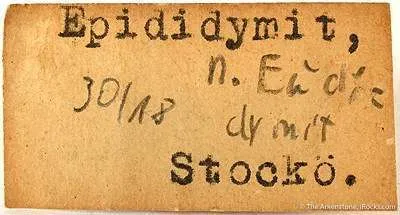 Epididymit,
n. Eudi=
30/18
dymit
Stockö.
© The Arkenstone, iRocks.com